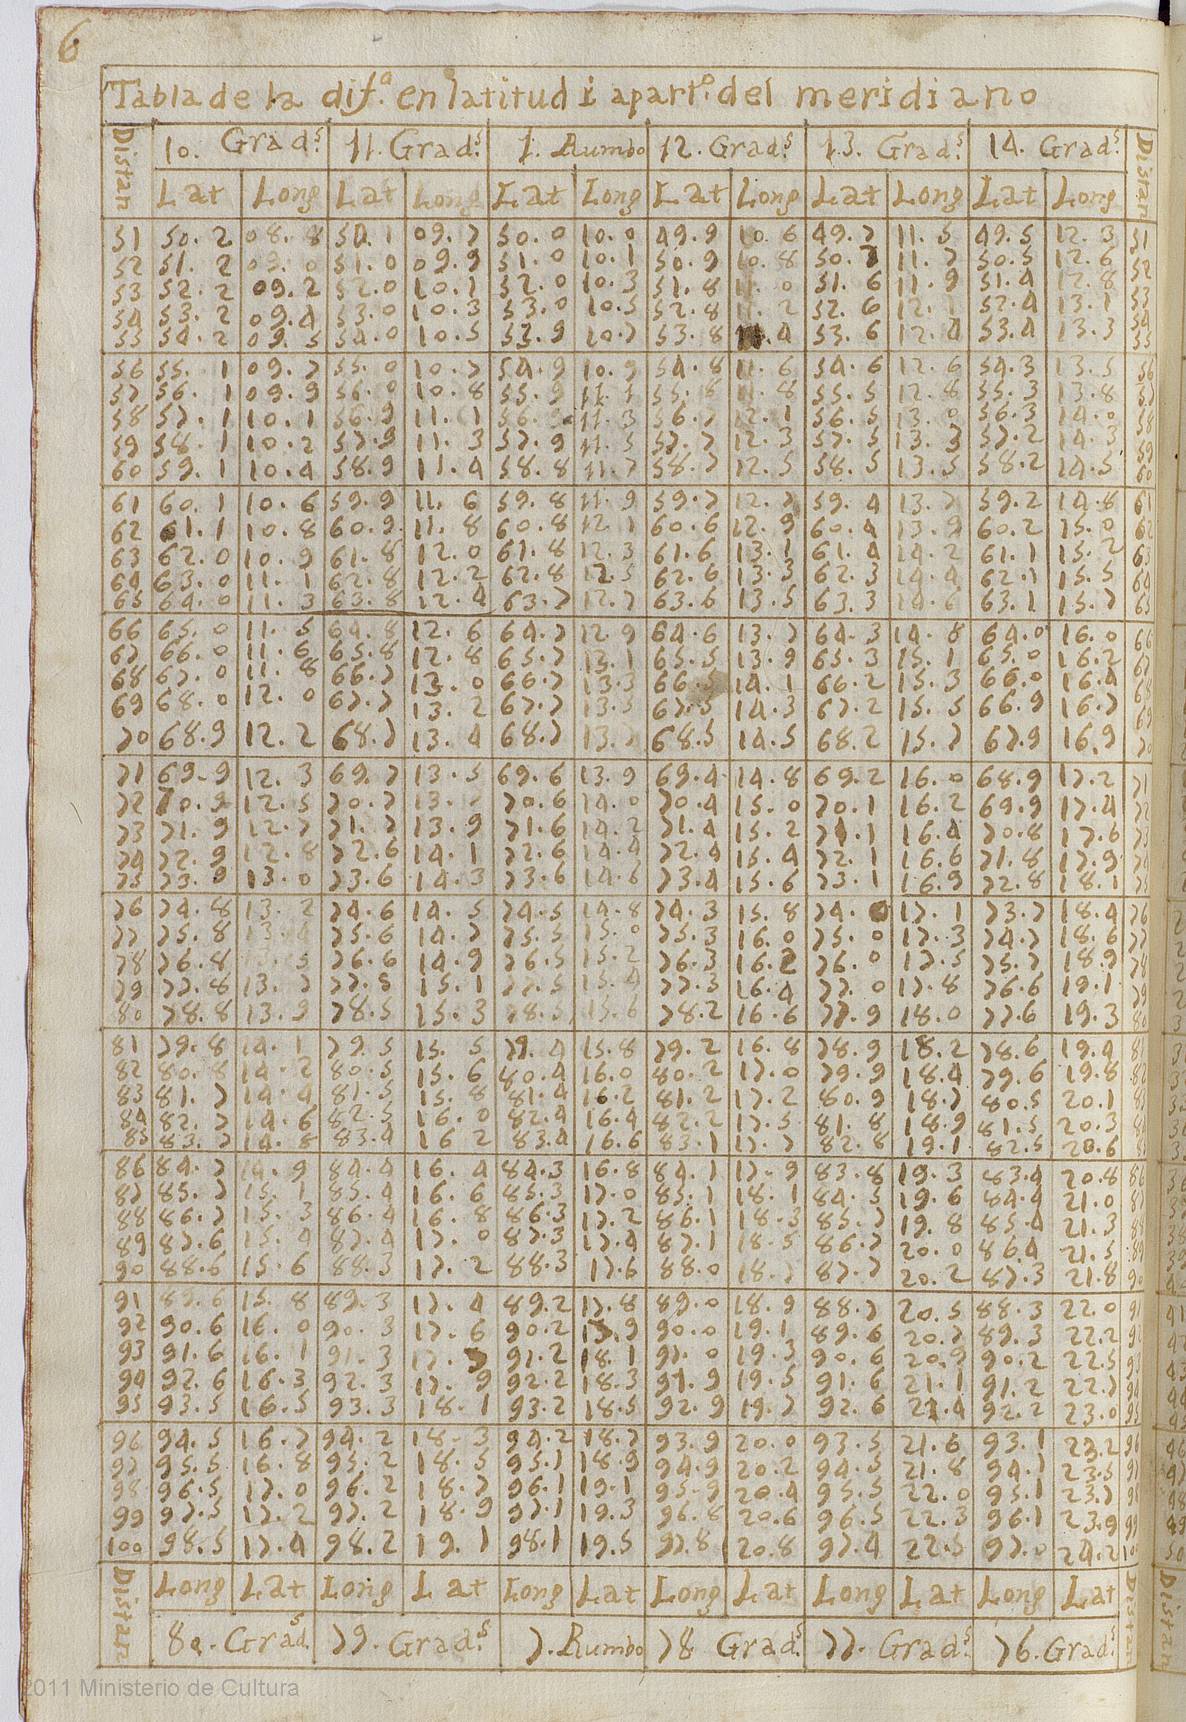 6
Tabla de la dif.ª en latitud i apart.º del meridiano
Distan 10. Grad.s 11. Grad.s 1. Rumbo 12. Grad.s 13. Grad.s 14. Grad.s Distan
Lat Long Lat Long Lat Long Lat Long Lat Long Lat Long
51 50.2 08.8 50.1 09.7 50.0 10.0 49.9 10.6 49.7 11.5 49.5 12.3 51
52 51.2 09.0 51.0 09.9 51.0 10.1 50.9 10.8 50.7 11.7 50.5 12.6 52
53 52.2 09.2 52.0 10.1 52.0 10.3 51.8 11.0 51.6 11.9 51.4 12.8 53
54 53.2 09.4 53.0 10.3 53.0 10.5 52.8 11.2 52.6 12.1 52.4 13.1 54
55 54.2 09.5 54.0 10.5 53.9 10.7 53.8 11.4 53.6 12.4 53.4 13.3 55
56 55.1 09.7 55.0 10.7 54.9 10.9 54.8 11.6 54.6 12.6 54.3 13.5 56
57 56.1 09.9 56.0 10.8 55.9 11.1 55.8 11.8 55.5 12.8 55.3 13.8 57
58 57.1 10.1 56.9 11.1 56.9 11.3 56.7 12.1 56.5 13.0 56.3 14.0 58
59 58.1 10.2 57.9 11.3 57.9 11.5 57.7 12.3 57.5 13.3 57.2 14.3 59
60 59.1 10.4 58.9 11.4 58.8 11.7 58.7 12.5 58.5 13.5 58.2 14.5 60
61 60.1 10.6 59.9 11.6 59.8 11.9 59.7 12.7 59.4 13.7 59.2 14.8 61
62 61.1 10.8 60.9 11.8 60.8 12.1 60.6 12.9 60.4 13.9 60.2 15.0 62
63 62.0 10.9 61.8 12.0 61.8 12.3 61.6 13.1 61.4 14.2 61.1 15.2 63
64 63.0 11.1 62.8 12.2 62.8 12.5 62.6 13.3 62.3 14.4 62.1 15.5 64
65 64.0 11.3 63.8 12.4 63.7 12.7 63.6 13.5 63.3 14.6 63.1 15.7 65
66 65.0 11.5 64.8 12.6 64.7 12.9 64.6 13.7 64.3 14.8 64.0 16.0 66
67 66.0 11.6 65.8 12.8 65.7 13.1 65.5 13.9 65.3 15.1 65.0 16.2 67
68 67.0 11.8 66.7 13.0 66.7 13.3 66.5 14.1 66.2 15.3 66.0 16.4 68
69 68.0 12.0 67.7 13.2 67.7 13.5 67.5 14.3 67.2 15.5 66.9 16.7 69
70 68.9 12.2 68.7 13.4 68.7 13.7 68.5 14.5 68.2 15.7 67.9 16.9 70
71 69.9 12.3 69.7 13.5 69.6 13.9 69.4 14.8 69.2 16.0 68.9 17.2 71
72 70.9 12.5 70.7 13. 70.6 14.0 70.4 15.0 70.1 16.2 69.9 17.4 72
73 71.9 12.7 71.7 13.9 71.6 14.2 71.4 15.2 71.1 16.4 70.8 17.6 73
74 72.9 12.8 72.6 14.1 72.6 14.4 72.4 15.4 72.1 16.6 71.8 17.9 74
75 73.9 13.0 73.6 14.3 73.6 14.6 73.4 15.6 73.1 16.9 72.8 18.1 75
76 74.8 13.2 74.6 14.5 74.5 14.8 74.3 15.8 74.0 17.1 73.7 18.4 76
77 75.8 13.4 75.6 14.7 75.5 15.0 75.3 16.0 75.0 17.3 74.7 18.6 77
78 76.8 13.5 76.6 14.9 76.5 15.2 76.3 16.2 76.0 17.5 75.7 18.9 78
79 77.8 13.7 77.5 15.1 77.5 15.4 77.3 16.4 77.0 17.8 76.6 19.1 79
80 78.8 13.9 78.5 15.3 78.5 15.6 78.2 16.6 77.9 18.0 77.6 19.3 80
81 79.8 14.1 79.5 15.5 79.4 15.8 79.2 16.8 78.9 18.2 78.6 19.4 81
82 80.8 14.2 80.5 15.6 80.4 16.0 80.2 17.0 79.9 18.4 79.6 19.8 82
83 81.7 14.4 81.5 15.8 81.4 16.2 81.2 17.2 80.9 18.7 80.5 20.1 83
84 82.7 14.6 82.5 16.0 82.4 16.4 82.2 17.5 81.8 18.9 81.5 20.3 84
85 83.7 14.8 83.4 16 2 83.4 16.6 83.1 17.7 82.8 19.1 82.5 20.6 85
86 84.7 14.9 84.4 16.4 84.3 16.8 84.1 17.9 83.8 19.3 83.4 20.8 86
87 85.7 15.1 85.4 16.6 85.3 17.0 85.1 18.1 84.5 19.6 84.4 21.0 87
88 86.7 15.3 86.4 16.8 86.3 17.2 86.1 18.3 85.7 19.8 85.4 21.3 88
89 87.6 15.4 87.4 17.0 87.3 17.4 87.1 18.5 86.7 20.0 86.4 21.5 89
90 88.6 15.6 88.3 17.2 88.3 17.6 88.0 18.7 87.7 20.2 87.3 21.8 90
91 89.6 15.8 89.3 17.4 89.2 17.8 89.0 18.9 88.7 20.5 88.3 22.0 91
92 90.6 16.0 90.3 17.6 90.2 17.9 90.0 19.1 89.6 20.7 89.3 22.2 92
93 91.6 16.1 91.3 17. 91.2 18.1 91.0 19.3 90.6 20.9 90.2 22.5 93
94 92.6 16.3 92.3 17.9 92.2 18.3 91.9 19.5 91.6 21.1 91.2 22.7 94
95 93.5 16.5 93.3 18.1 93.2 18.5 92.9 19.7 92.6 21.4 92.2 23.0 95
96 94.5 16.7 94.2 18.3 94.2 18.7 93.9 20.0 93.5 21.6 93.1 23.2 96
97 95.5 16.8 95.2 18.5 95.1 18.9 94.9 20.2 94.5 21.8 94.1 23.5 97
98 96.5 17.0 96.2 18.7 96.1 19.1 95.9 20.4 95.5 22.0 95.1 23.7 98
99 97.5 17.2 97.2 18.9 97.1 19.3 96.8 20.6 96.5 22.3 96.1 23.9 99
100 98.5 17.4 98.2 19.1 98.1 19.5 97.8 20.8 97.4 22.5 97.0 24.2 100
Distan Long Lat Long Lat Long Lat Long Lat Long Lat Long Lat Distan
80. Grad.s 79. Grad.s 7. Rumbo 78 Grad.s 77. Grad.s 76. Grad.s
2011 Ministerio de Cultura